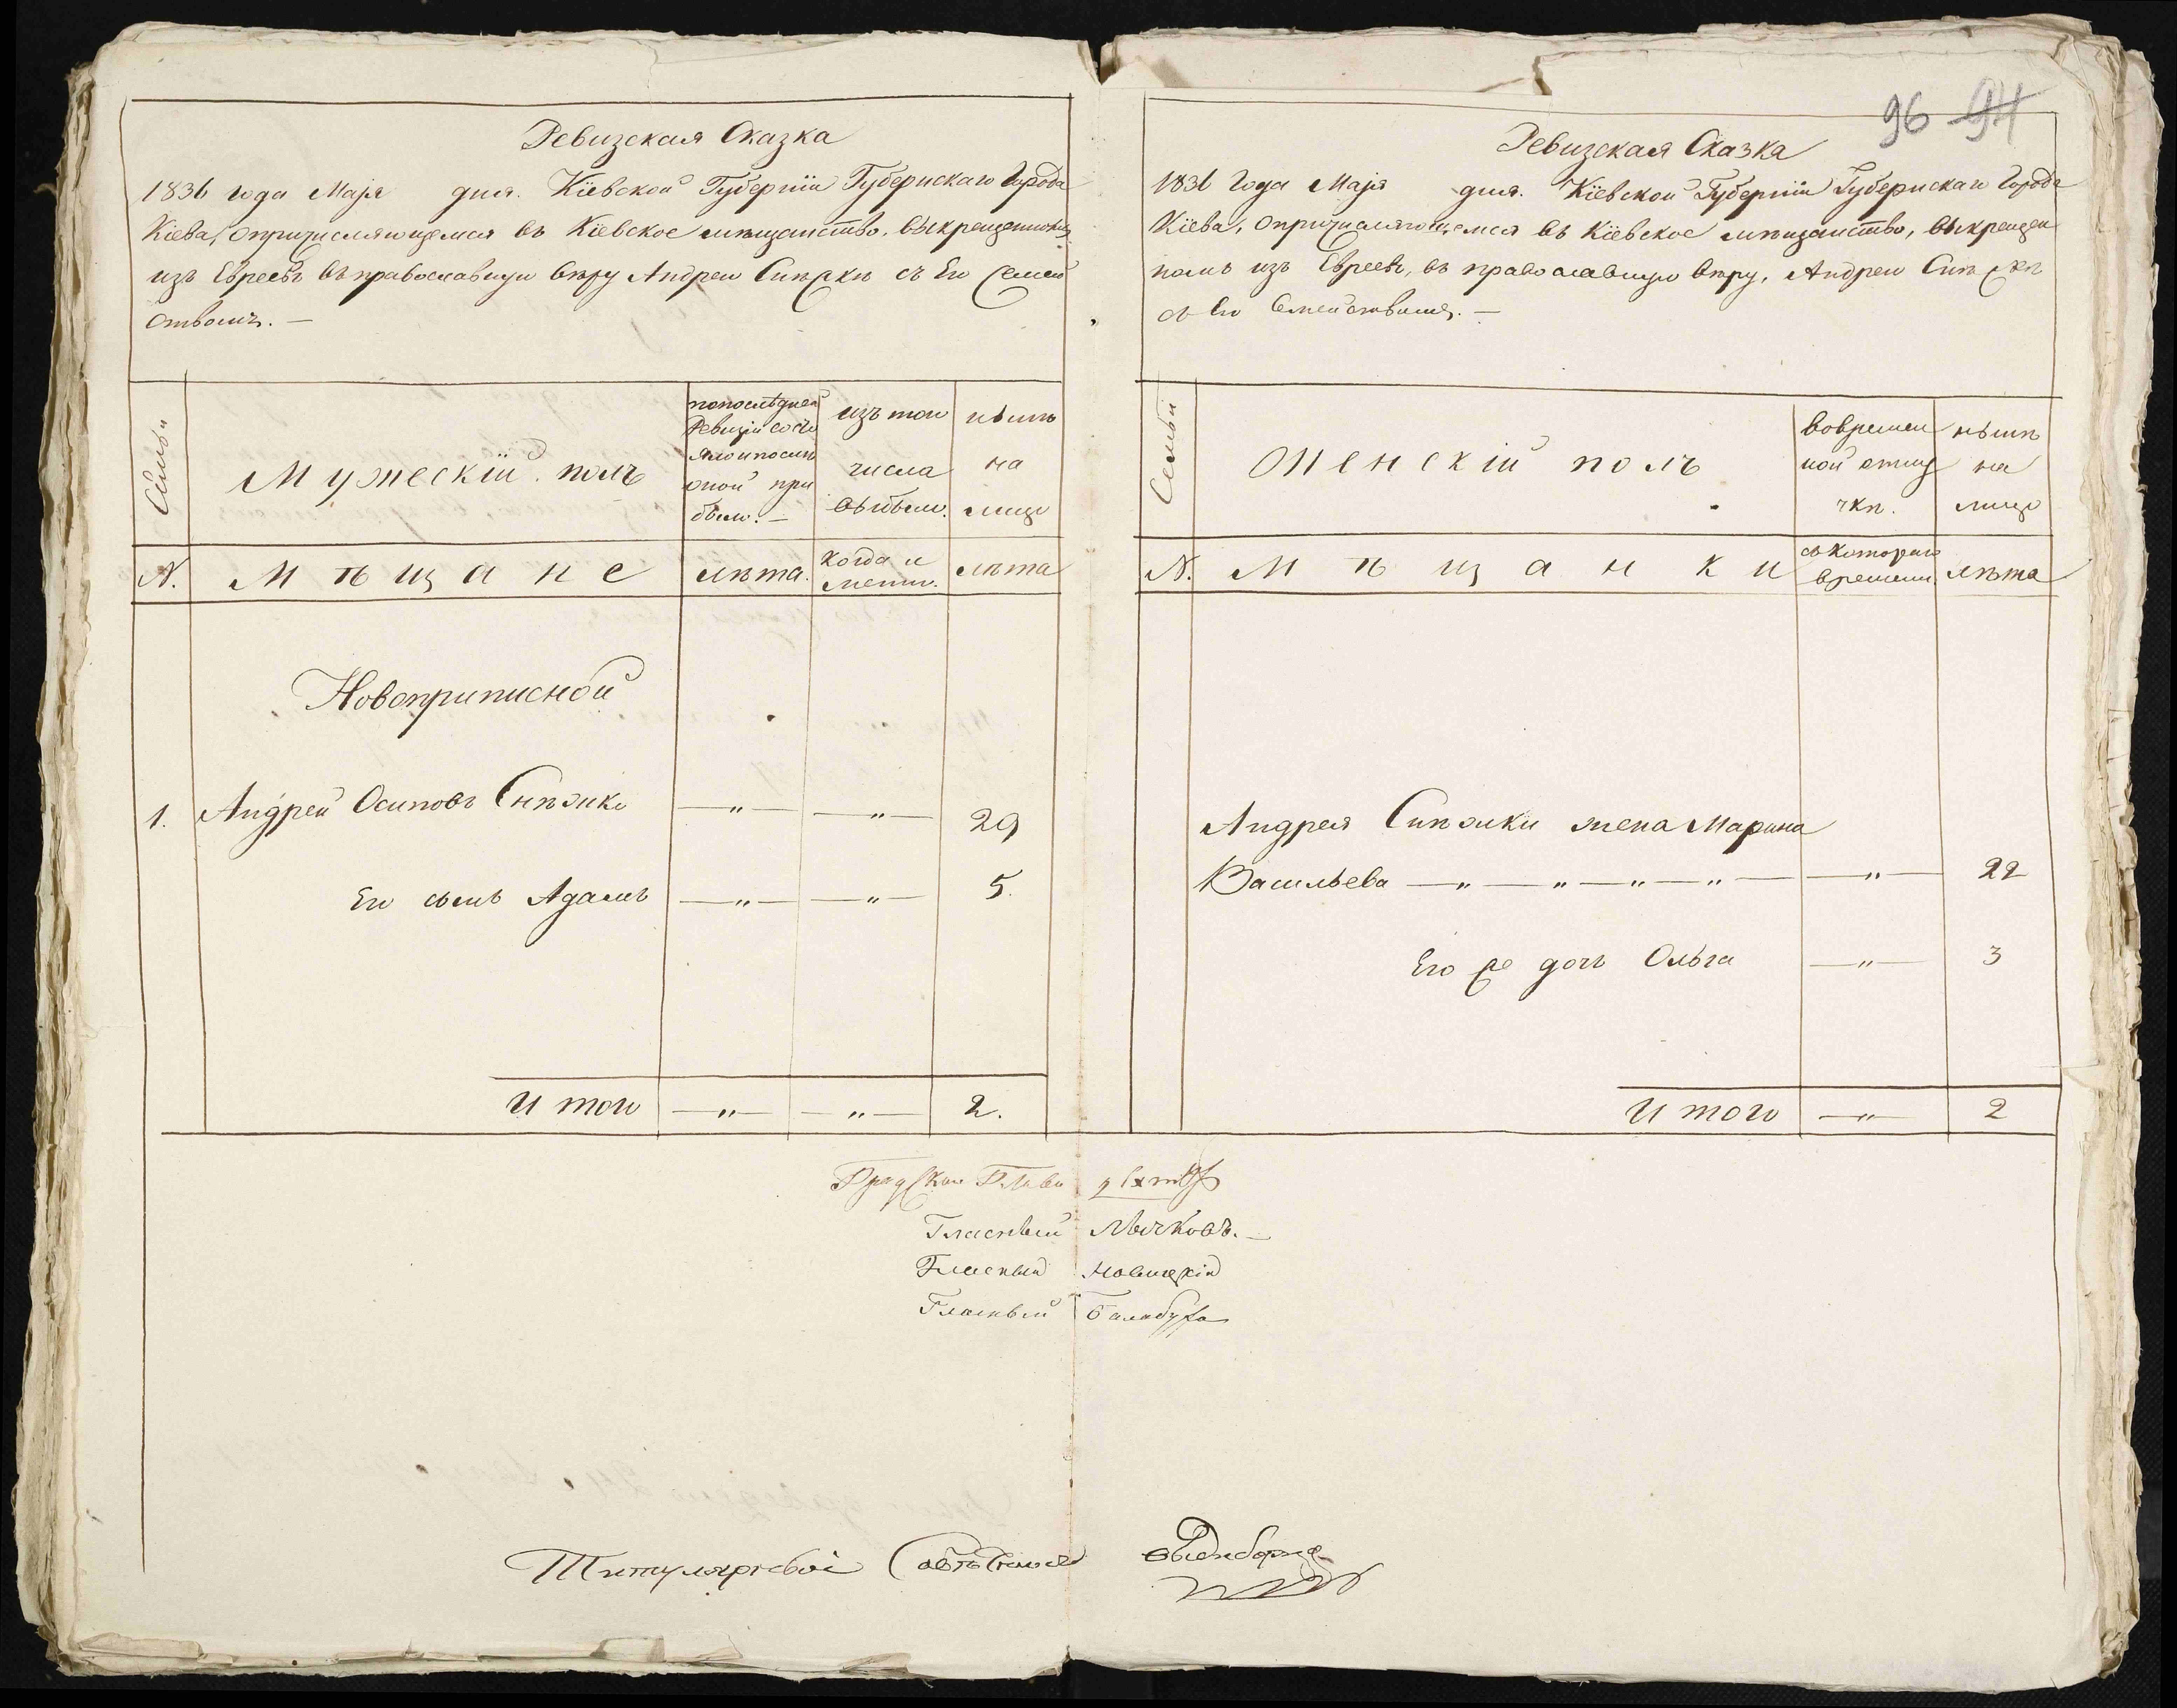 Ревизская Сказка
1836 года Маія дня. Кіевской Губерніи Губернскаго Города
Кіева, опричисляющемся въ Кіевское мѣщанство, выкрещенномъ
изъ Евреевъ въ православную вѣру Андреи Снѣжкѣ съ Его Семей
ствомъ. —
Семьи
Мужескій полъ
попоследней
Ревизіи состо
яло и после
оной при
было. —
изъ того
числа
выбыло.
нынѣ
на
лицо
N.
Мѣщане
лѣта.
когда и
лѣта
Новоприписной
1. Андрей Осиповъ Снѣжко — " — — " — 29
Его сынъ Адамъ — " — — " — 5.
Итого — " — — " — 2.
96 94
Ревизская Сказка
1836 Года Маія дня. Кіевской Губерніи Губернскаго Города
Кіева, опричисляющемся въ Кіевское мѣщанство, выкрещен
номъ изъ Евреевъ, въ православную вѣру, Андреи Снѣжкѣ
съ Его Семействомъ. —
Семьи
Женскій полъ
вовремен
ной отлу
чкѣ.
нынѣ
на
лицо
N.
Мѣщанки
съ котораго
времени.
лѣта
Андрея Снѣжки жена Марина
Васильева — " — " — " — " — — " — 22
Его же дочь Ольга — " — 3
Итого — " — 2
Градской Глава
Гласный Лычковъ. —
Гласный Новицкій
Гласный Балабуха
Титулярной Совѣтникъ